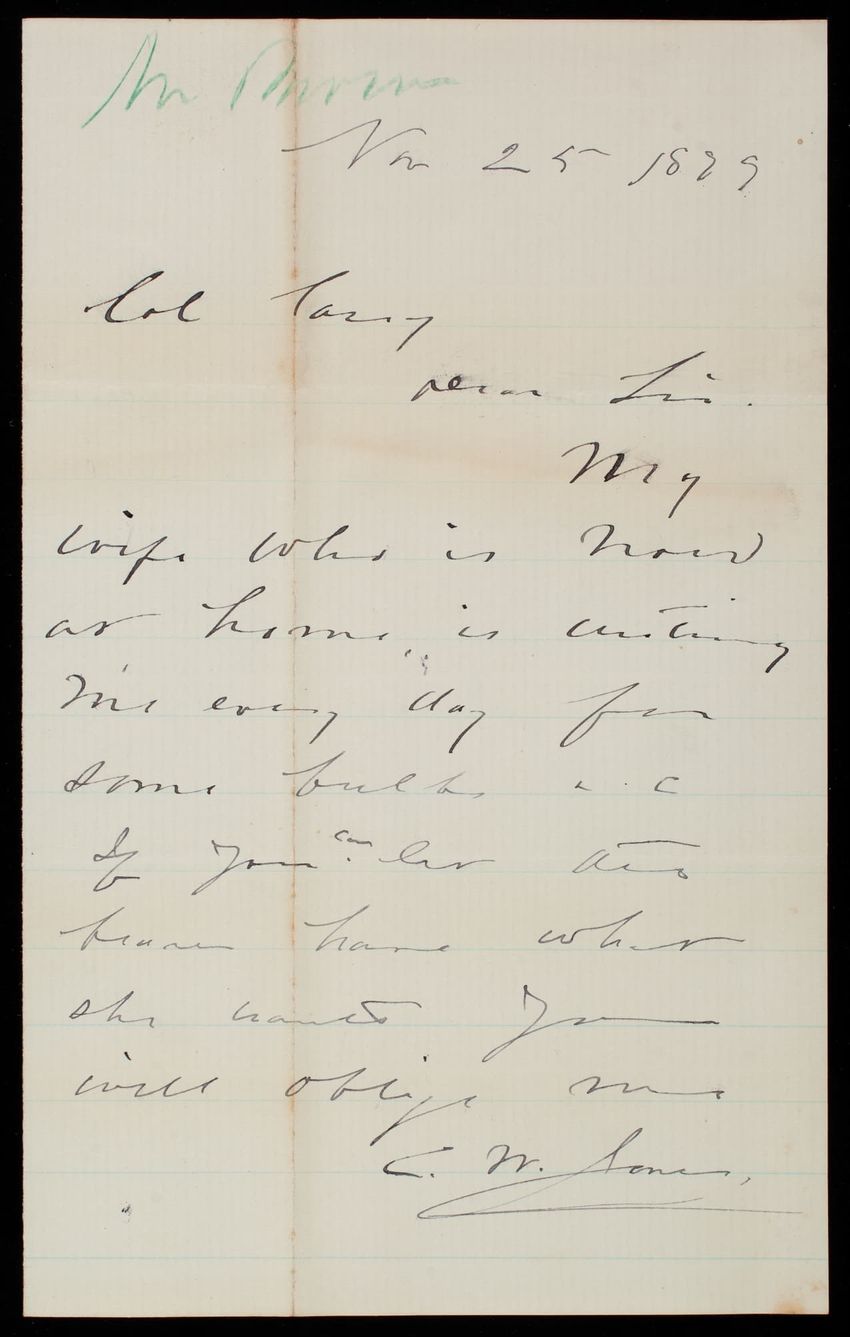 Mr Brown
Nov 25 1879
Col Casey
Dear Sir.
My
wife who is now
at home, is writing
me every day for
some bulbs & c
If you can let the
bearer have what
she wants you
will oblige me
C. W. Jones,